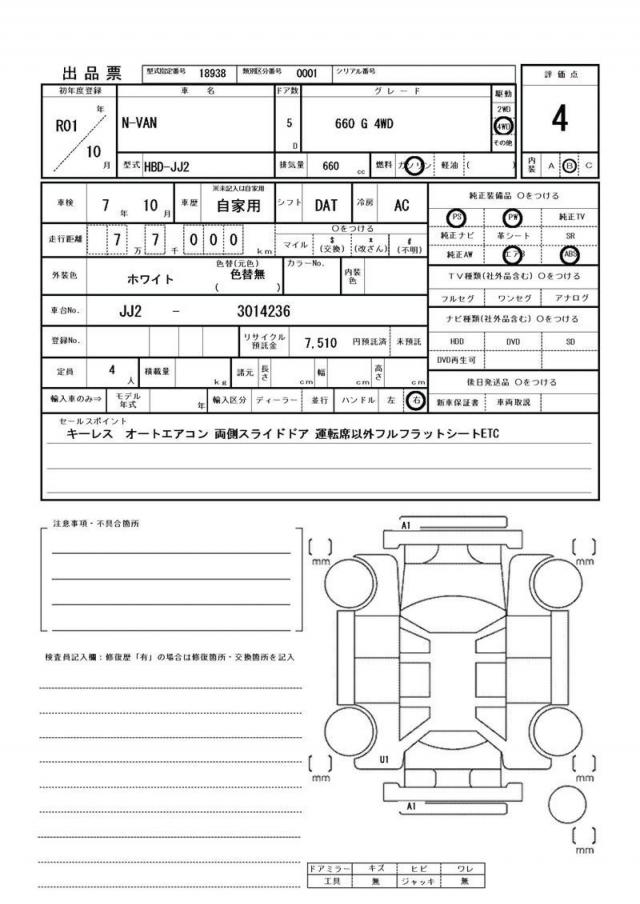 出品票 型式指定番号 18938 類別区分番号 0001 シリアル番号
評価点
初年度登録 車名 ドア数 グレード 駆動
R01 年 10 月 N-VAN 5 D 660 G 4WD 2WD 4WD その他
4
型式 HBD-JJ2 排気量 660 cc 燃料 ガソリン 軽油 ( ) 内装 A B C
車検 7 年 10 月 車歴 ※未記入は自家用 自家用 シフト DAT 冷房 AC
純正装備品 Oをつける
PS PW 純正TV
走行距離 7 万 7 千 0 0 0 km Oをつける マイル $ (交換) * (改ざん) # (不明)
純正ナビ 革シート SR
純正AW エアB ABS
外装色 ホワイト 色替(元色) 色替無 ( ) カラーNo. 内装色
TV種類(社外品含む) Oをつける
フルセグ ワンセグ アナログ
車台No. JJ2 - 3014236
ナビ種類(社外品含む) Oをつける
登録No. リサイクル預託金 7,510 円預託済 未預託
HDD DVD SD
DVD再生可
定員 4 人 積載量 kg 諸元 長さ cm 幅 cm 高さ cm
後日発送品 Oをつける
輸入車のみ⇒ モデル年式 年 輸入区分 ディーラー 並行 ハンドル 左 右
新車保証書 車両取説
セールスポイント
キーレス オートエアコン 両側スライドドア 運転席以外フルフラットシートETC
注意事項・不具合箇所
検査員記入欄：修復歴「有」の場合は修復箇所・交換箇所を記入
A1
[ ] mm [ ] mm
U1
[ ] mm [ ] mm
A1
[ ] mm
ドアミラー キズ ヒビ ワレ
工具 無 ジャッキ 無